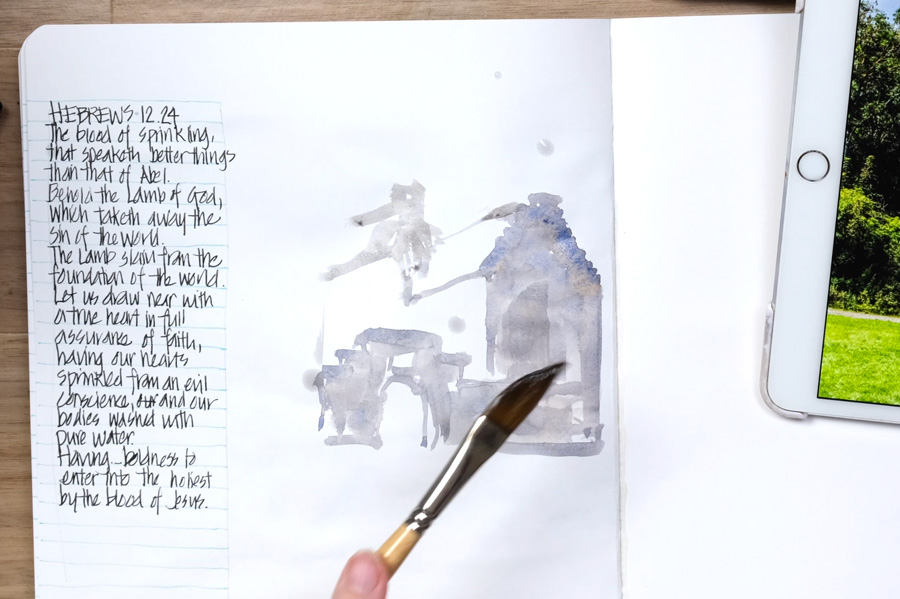 HEBREWS 12.24
The blood of sprinkling,
that speaketh better things
than that of Abel.
Behold the Lamb of God,
which taketh away the
sin of the world.
The Lamb slain from the
foundation of the world.
Let us draw near with
a true heart in full
assurance of faith,
having our hearts
sprinkled from an evil
conscience, and our
bodies washed with
pure water.
Having... boldness to
enter into the holiest
by the blood of Jesus.